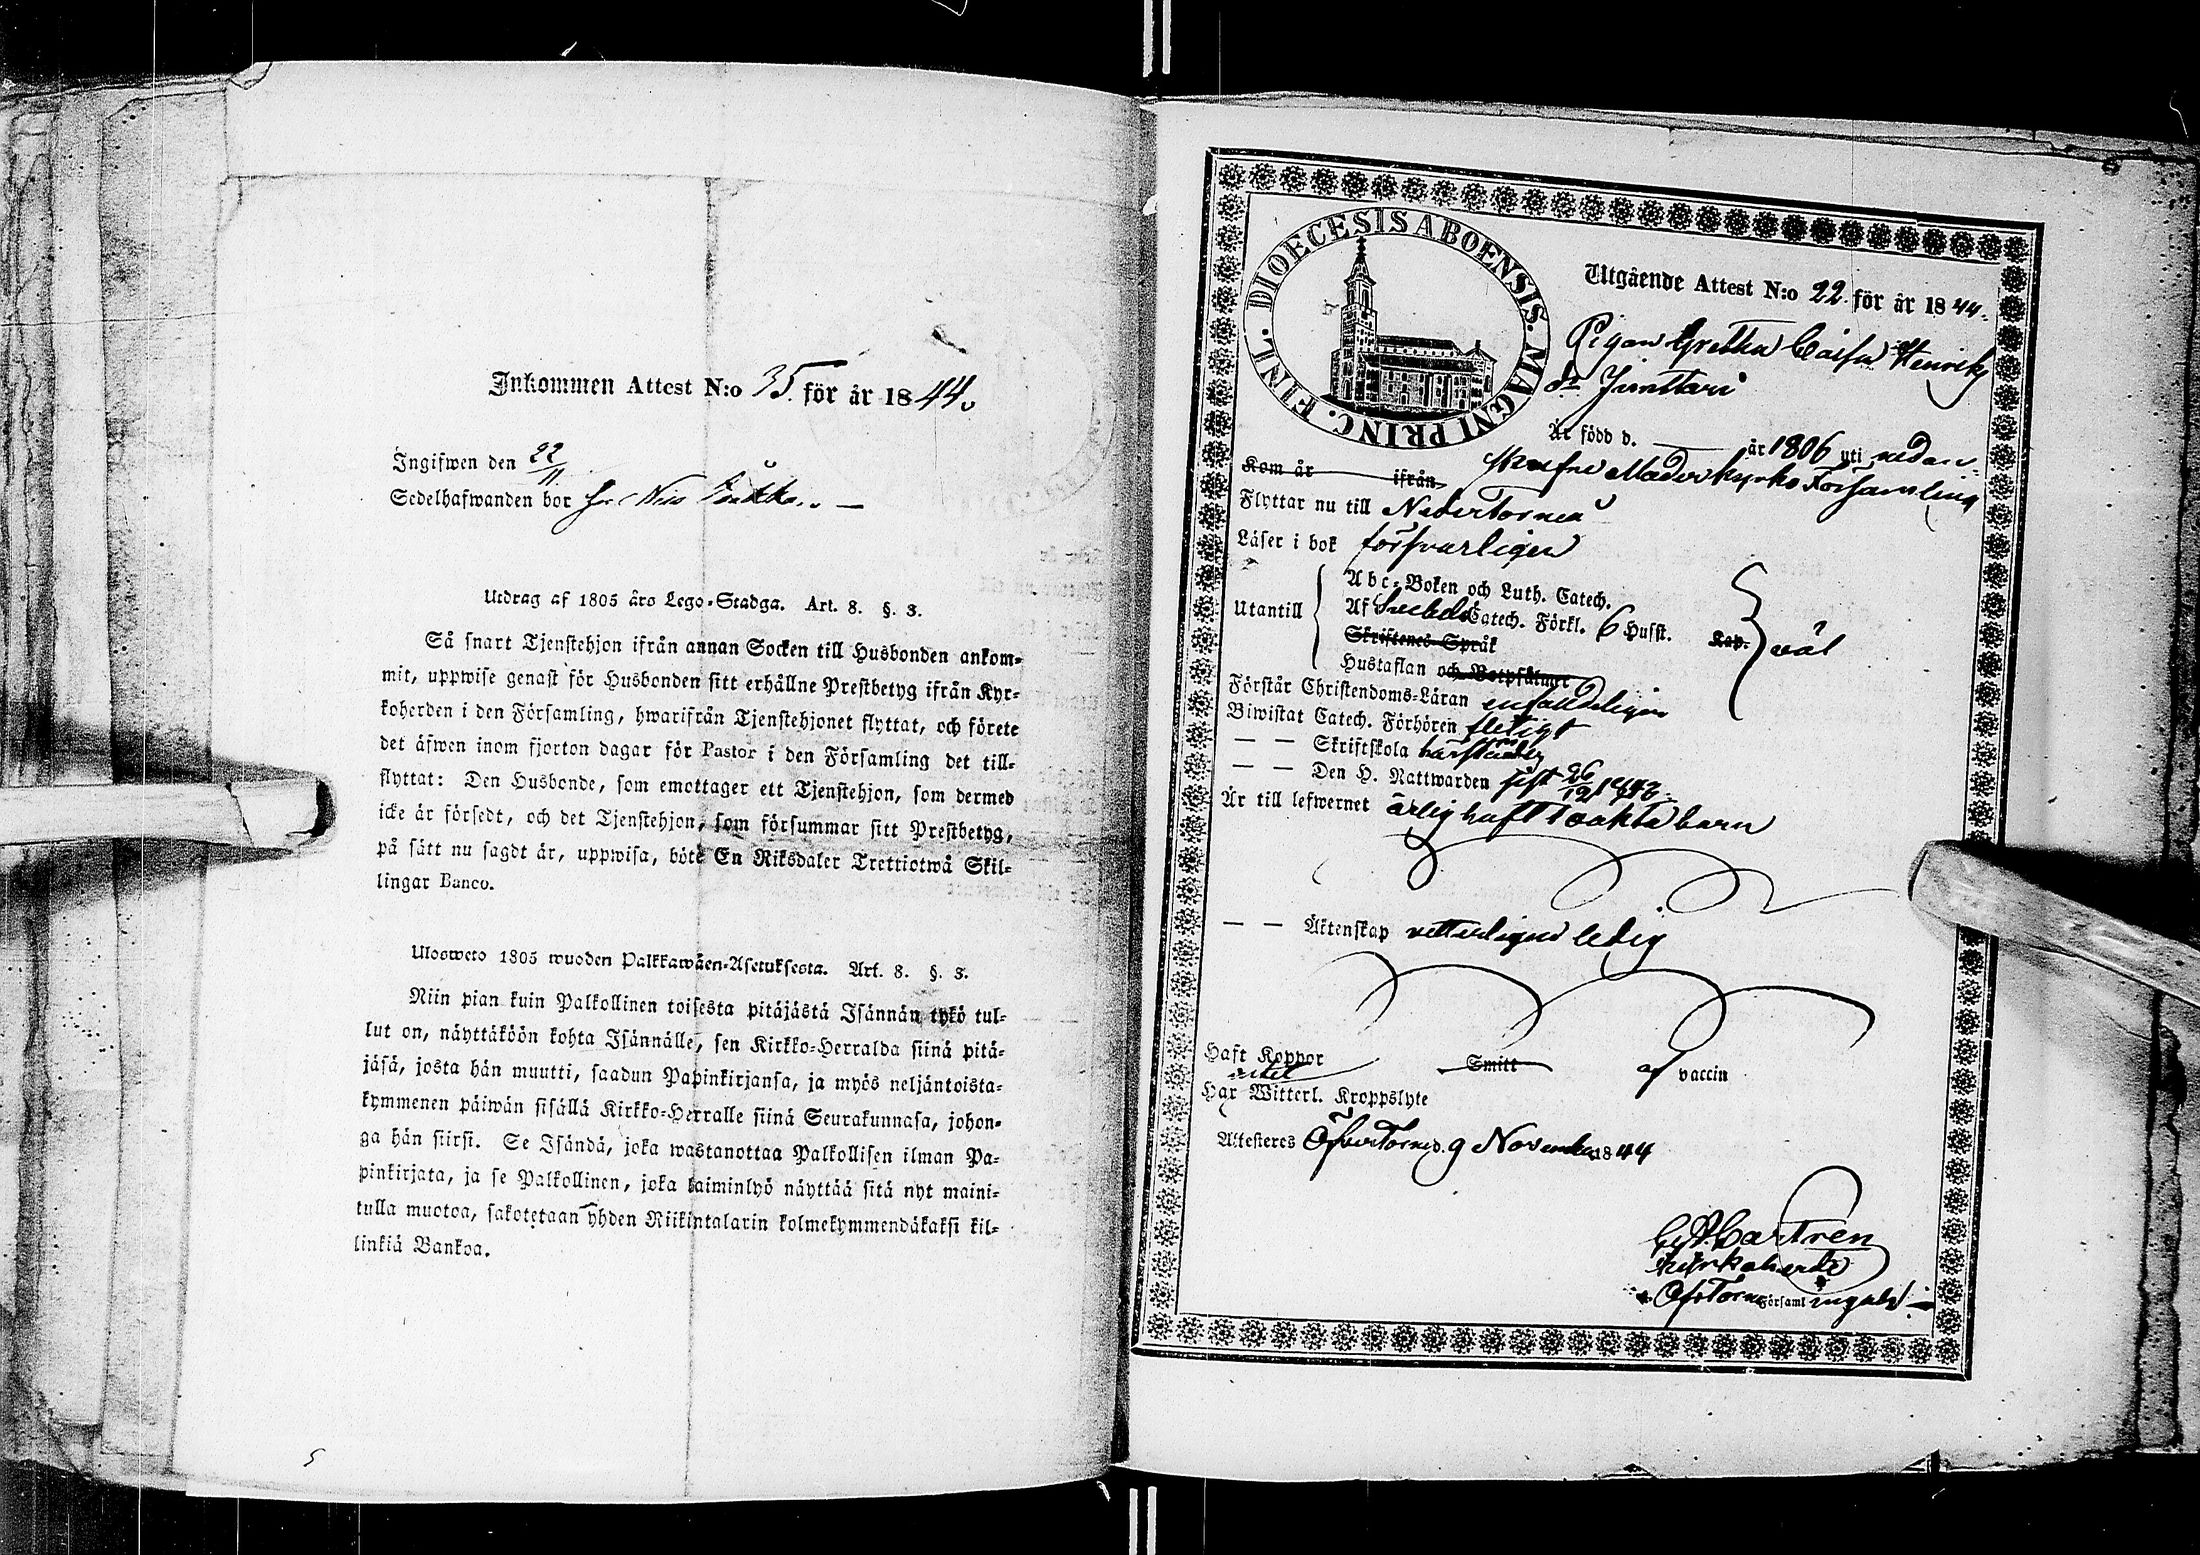 Inkommen Attest N:o 35. för år 1844.
Ingifwen den 22/11
Sedelhafwanden bor
Utdrag af 1805 års Lego-Stadga. Art. 8. §. 3.
Så snart Tjenstehjon ifrån annan Socken till Husbonden ankom-
mit, uppwise genast för Husbonden sitt erhållne Prestbetyg ifrån Kyr-
koherden i den Församling, hwarifrån Tjenstehjonet flyttat, och förete
det äfwen inom fjorton dagar för Pastor i den Församling det till-
flyttat: Den Husbonde, som emottager ett Tjenstehjon, som dermed
icke är försedt, och det Tjenstehjon, som försummar sitt Prestbetyg,
på sätt nu sagdt är, uppwisa, böte En Riksdaler Trettiotwå Skil-
lingar Banco.
Ulosweto 1805 wuoden Palkkawäen-Asetuksesta. Art. 8. §. 3.
Niin pian kuin Palkollinen toisesta pitäjästä Isännän tykö tul-
lut on, näyttäköön kohta Isännälle, sen Kirkko-Herralda siinä pitä-
jäsä, josta hän muutti, saadun Papinkirjansa, ja myös neljäntoista-
kymmenen päiwän sisällä Kirkko-Herralle siinä Seurakunnasa, johon-
ga hän siirsi. Se Isändä, joka wastanottaa Palkollisen ilman Pa-
pinkirjata, ja se Palkollinen, joka laiminlyö näyttää sitä nyt maini-
tulla muotoa, sakotetaan yhden Riikintalarin kolmekymmendäkaksi kil-
linkiä Bankoa.
DIOECESIS ABOENSIS. MAGNI PRINC. FINL.
Utgående Attest N:o 22. för år 1844.
Pigan Gretha Caisa Henriks
dr
Är född d. — år 1806 uti nedan-
skrefne Moderkyrko Församling
Kom år ifrån
Flyttar nu till NederTorneå
Läser i bok försvarligen
Utantill
Abc-Boken och Luth. Catech.
Af Svebelii Catech. Förkl. 6 Husst. Kap. väl
Skriftenes Språk
Hustaflan och Botpsalmer
Förstår Christendoms-Läran
Biwistat Catech. Förhören flitigt
— — Skriftskola
— — Den H. Nattwarden sist 26/12 1843.
Är till lefwernet ärlig haft 1 oäkta barn
— — Äktenskap vetterligen ledig
Haft Koppor Smitt af vaccin
Har Witterl. Kroppslyte
Attesteras ÖfverTorneå d. 9 November 1844
Castrén
Kyrkoherde
i ÖfvTorneå Församlingah